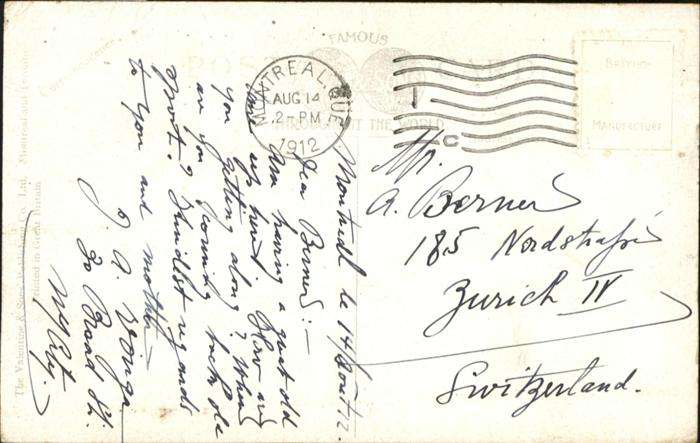 FAMOUS
POST CARD
THROUGHOUT THE WORLD
MONTREAL QUE.
AUG 14
2-PM
1912
BRITISH
MANUFACTURE
The Valentine & Sons Publishing Co., Ltd., Montreal and Toronto
Printed in Great Britain
Montreal le 14 Aout 12.
Dear Berner:—
Am having a good old
time up here. How are
you getting along? When
are you coming back old
sport? Kindest regards
to you and mother
J. A.
30 Broad St.
NY City.
Mr.
A. Berner
185 Nordstrasse
Zurich IV
Switzerland.